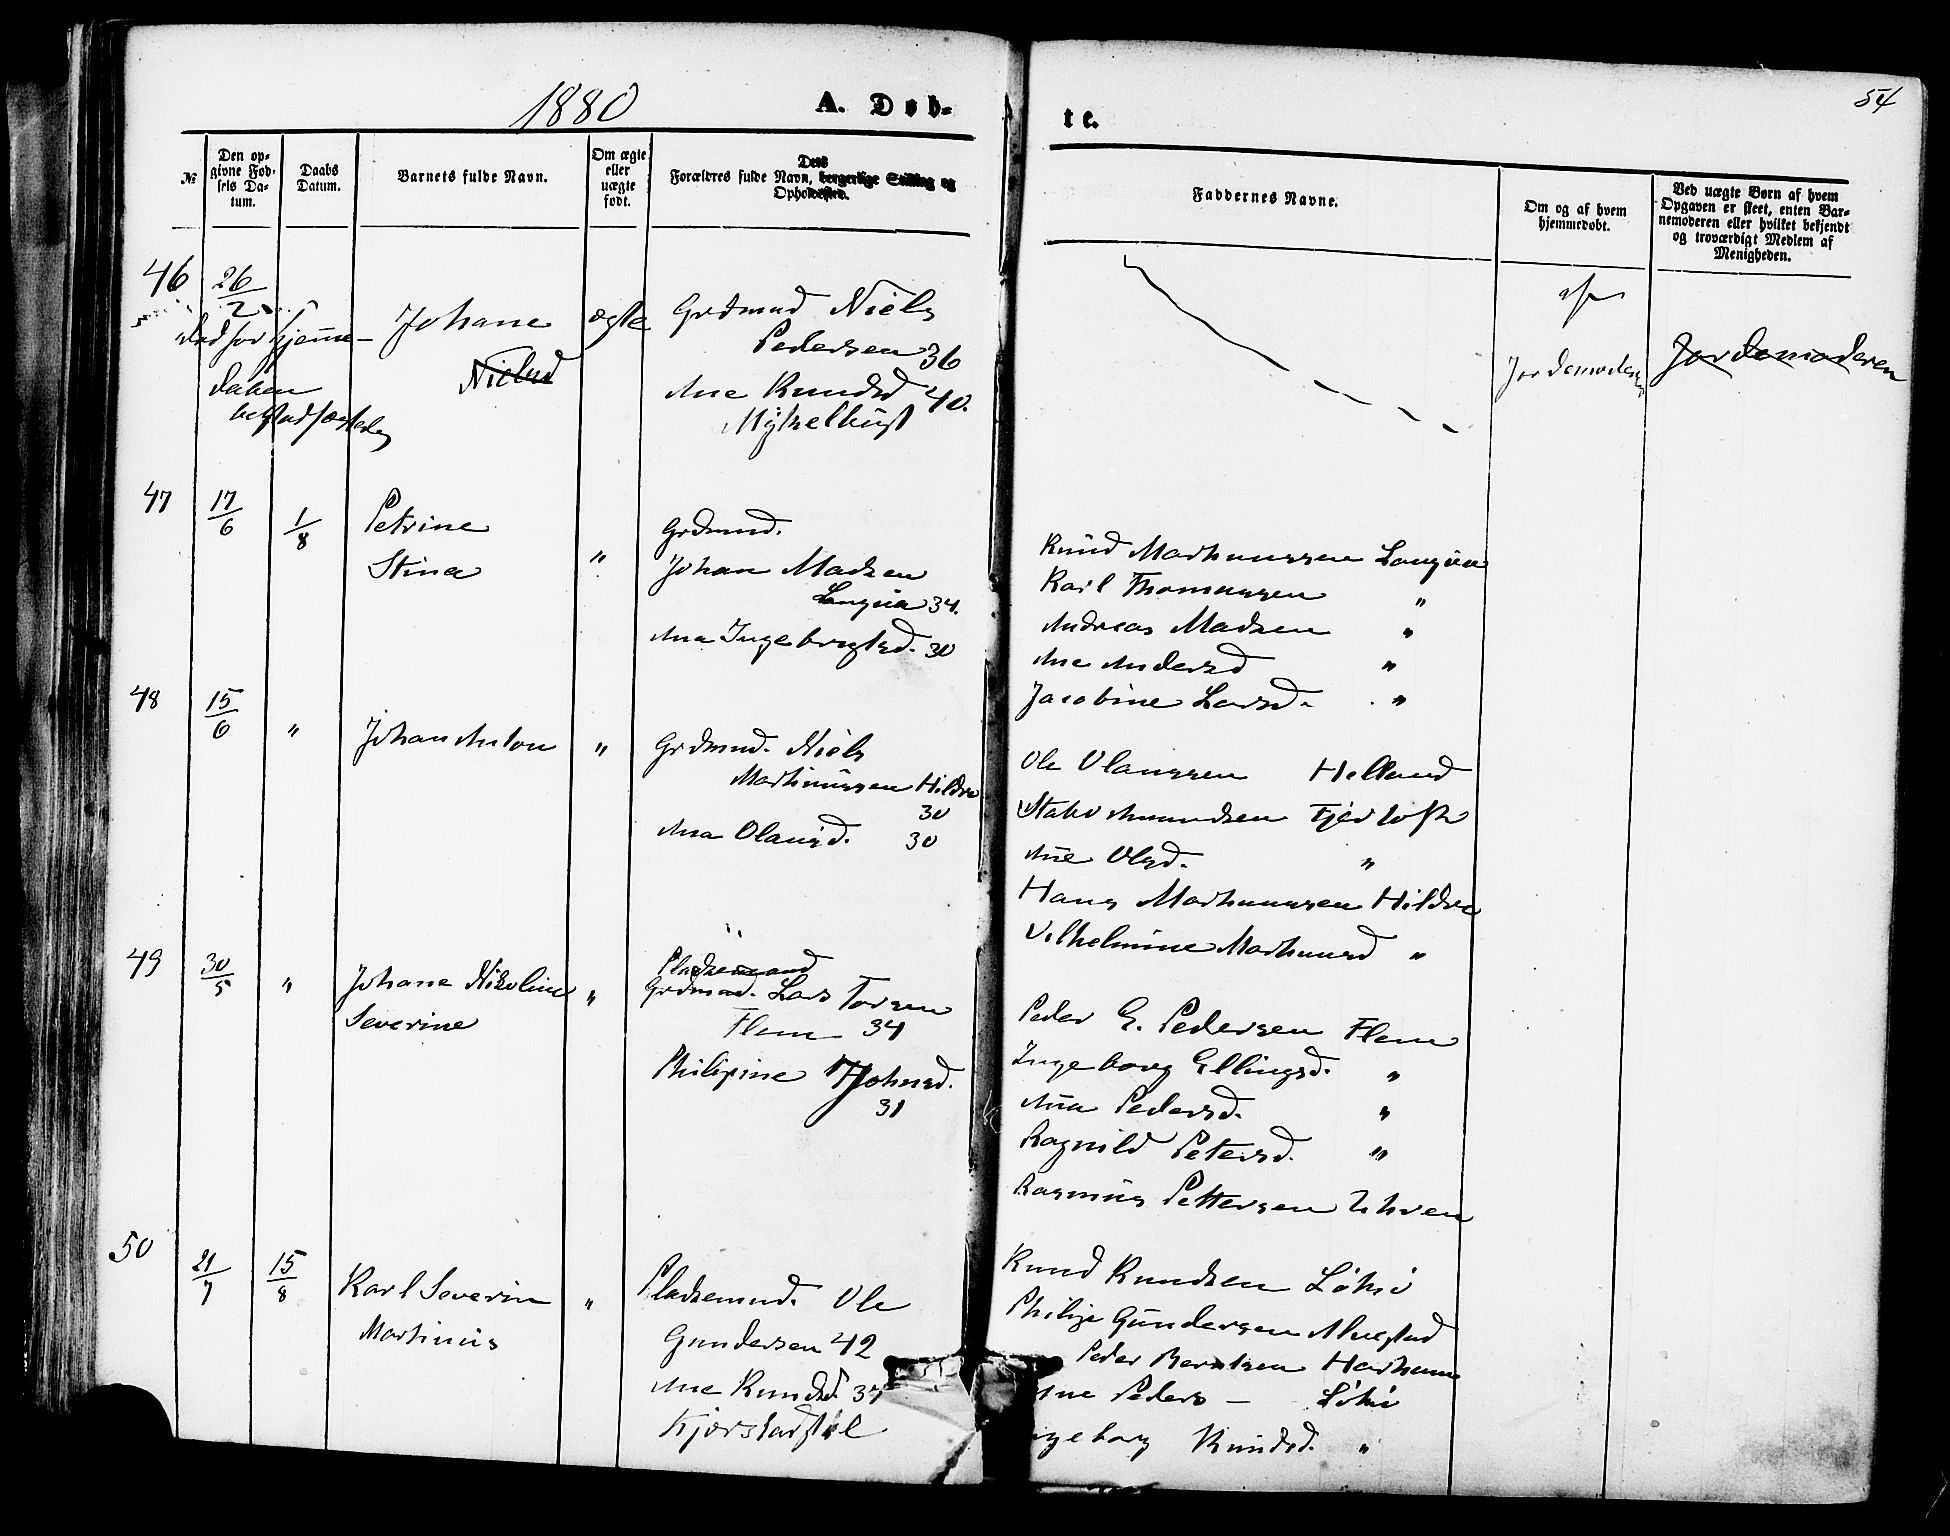 1880
A. Døb-
te.
54
№
Den op-
givne Fød-
sels Da-
tum.
Daabs
Datum.
Barnets fulde Navn.
Om ægte
eller
uægte
født.
Dets
Forældres fulde Navn, borgerlige Stilling og
Opholdssted.
Faddernes Navne.
Om og af hvem
hjemmedøbt.
Ved uægte Børn af hvem
Opgaven er skeet, enten Bar-
nemoderen eller hvilket bekjendt
og troværdigt Medlem af
Menigheden.
46 26/2 Johane Nielsd ægte
død før Hjemme-
daaben
Grdmnd Niels
Pedersen 36
Ane Knudsd 40.
Myhelbust
af
Jordemoderen
Jordemoderen
47 17/6 1/8 Petrine
Stina "
Grdmnd.
Johan Madsen
Longva 34.
Ana Ingebrigtsd. 30
Knud Marthinussen Longva
Karl Thomassen "
Andreas Madsen "
Ane Andersd "
Jacobine Larsd. "
48 15/6 " Johan Anton "
Grdmnd. Niels
Marthinussen Hildre
30
Ana Olausd. 30
Ole Olaussen Helland
Amundsen Fjertoft
Ane Olsd. "
Hans Marthinussen Hildre
Vilhelmine Marthinusd "
49 30/5 " Johane Nikoline "
Severine
Pladsemand
Grdmnd. Lars Torsen
Flem 34
Philipine Johnsd.
31
Peder E. Pedersen Flem
Ingeborg Ellingsd. "
Ana Pedersd. "
Ragnild Petersd. "
Rasmus Pettersen
50 21/7 15/8 Karl Severin "
Martinus
Pladsemnd. Ole
Gundersen 42
Ane Knudsd 37
Kjerstadstøl
Knud Knudsen Løhvi
Philip Gundersen Alvestad
Peder Berntsen Harham
Ane Peders — Løhvi
Ingeborg Knudsd. "